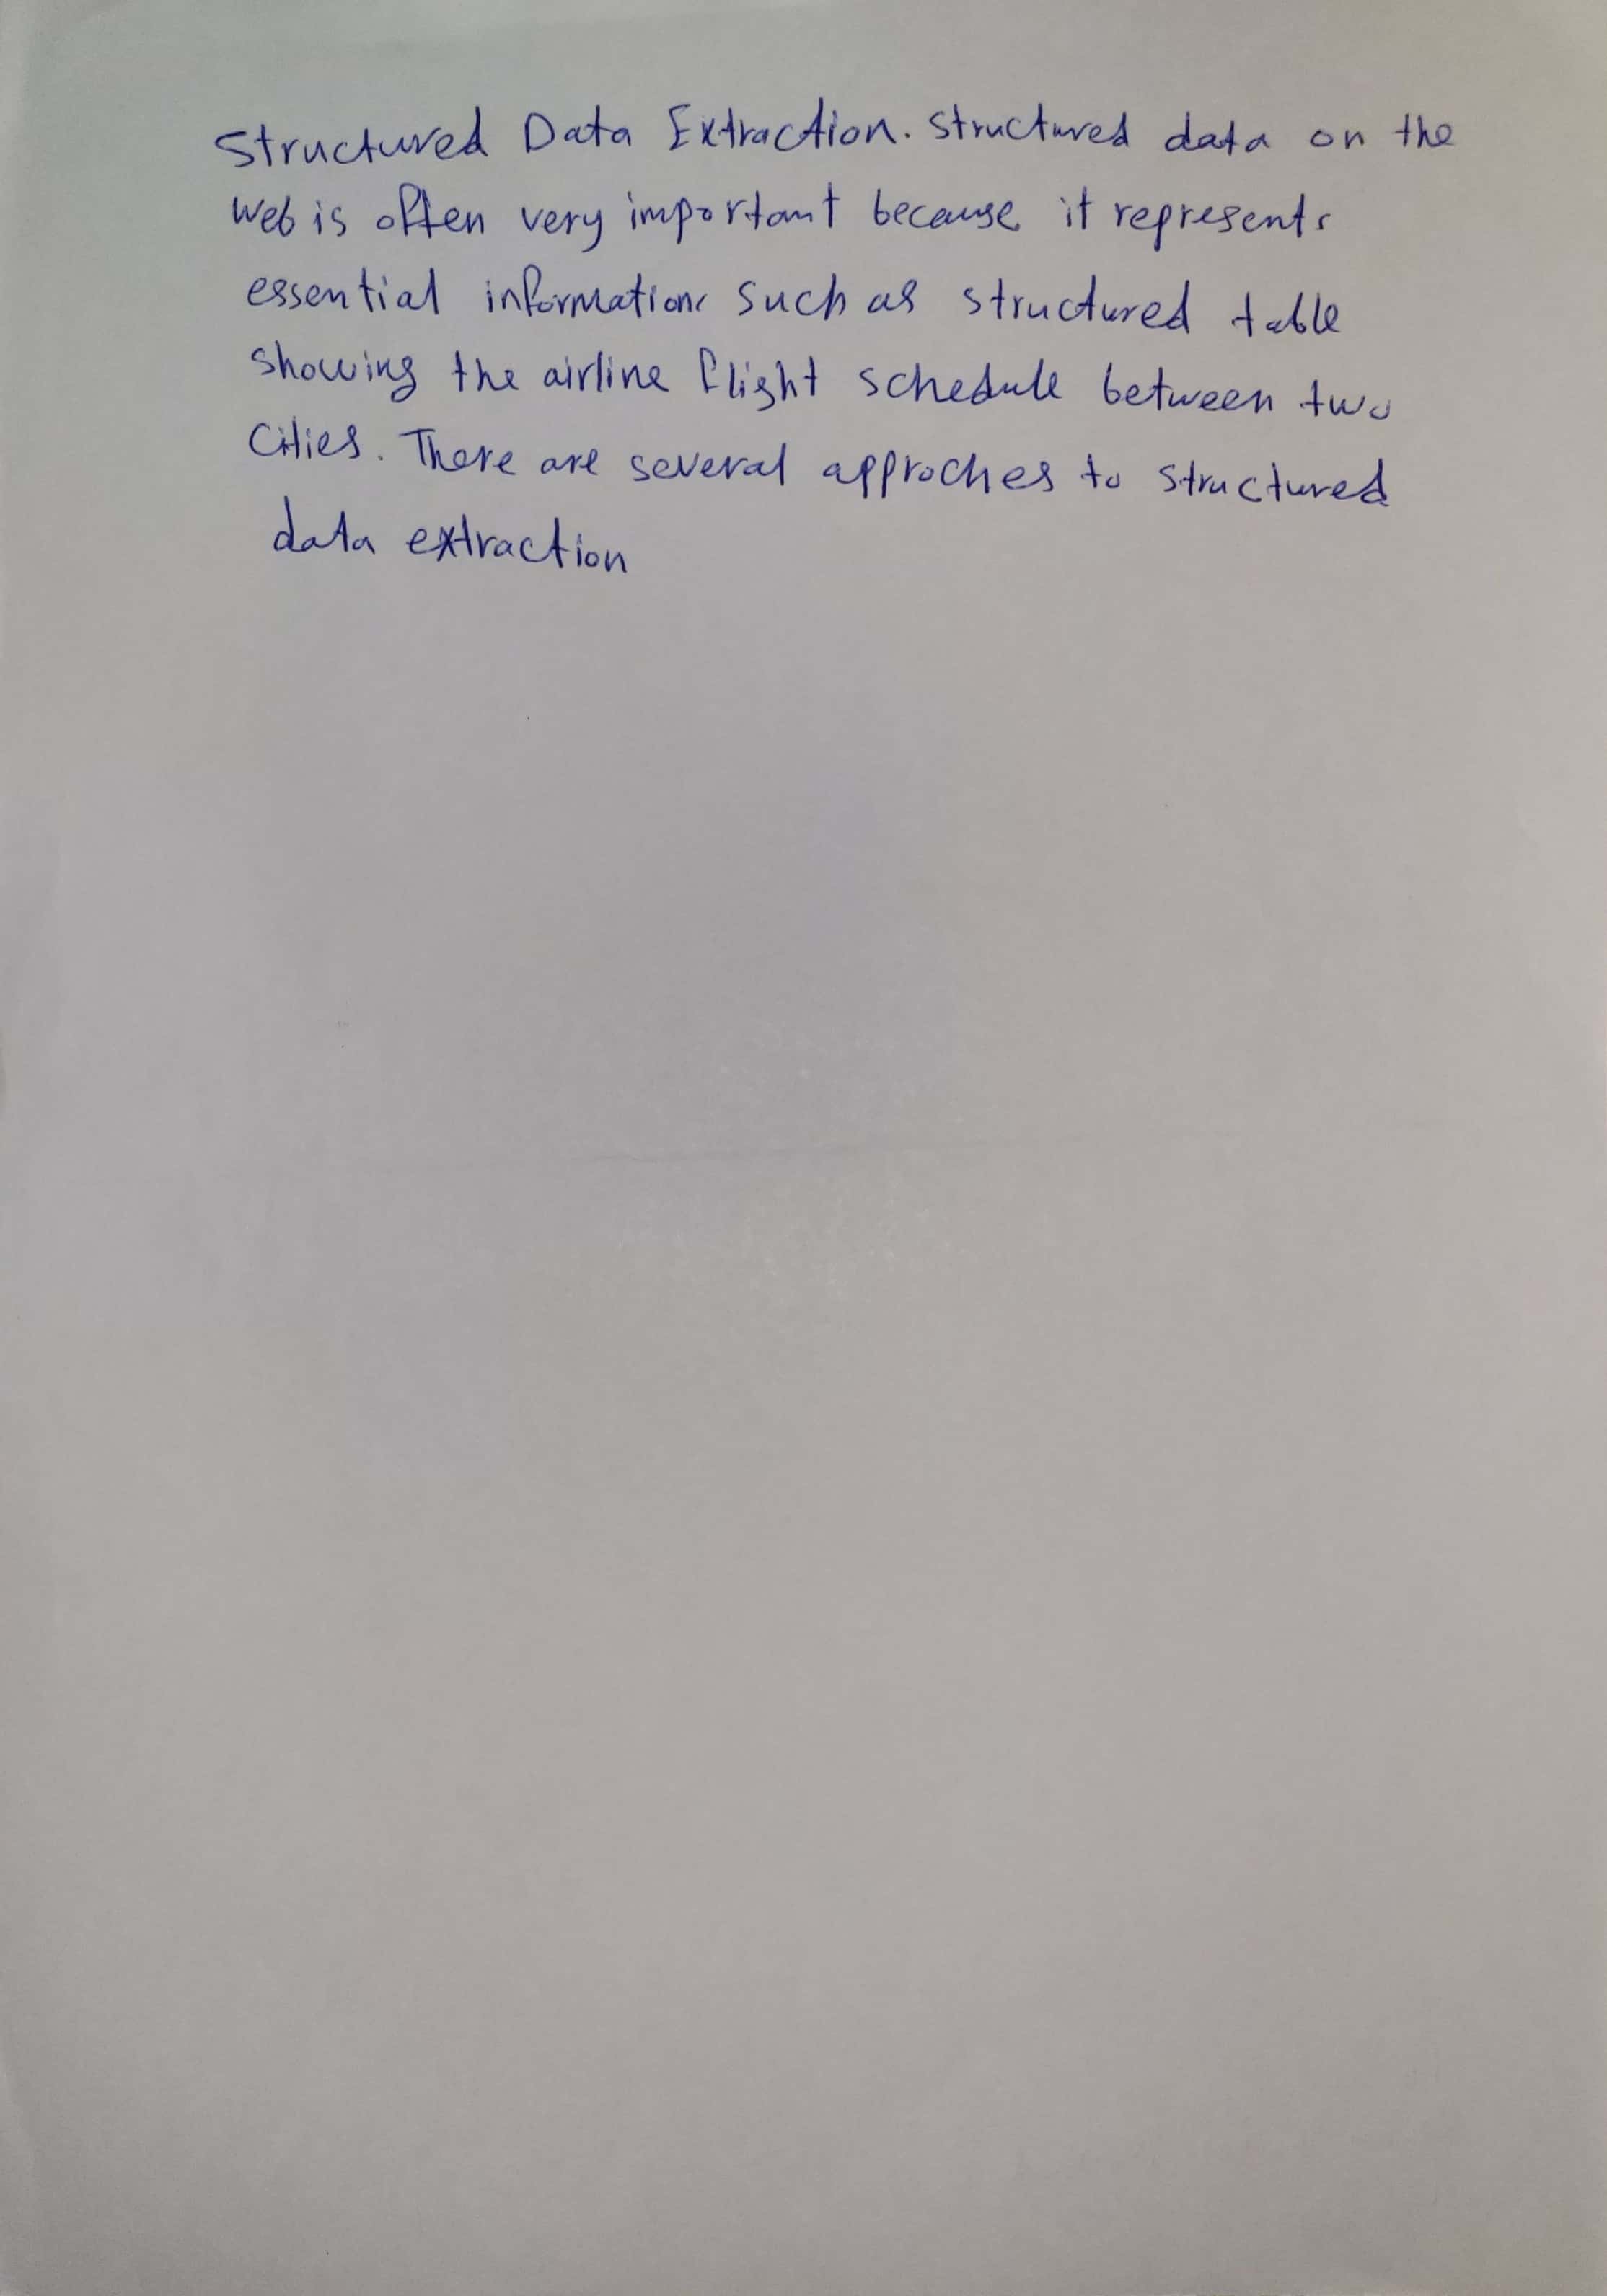 Structured Data Extraction. Structured data on the
Web is often very important because it represents
essential information, such as structured table
showing the airline flight schedule between two
cities. There are several approches to structured
data extraction